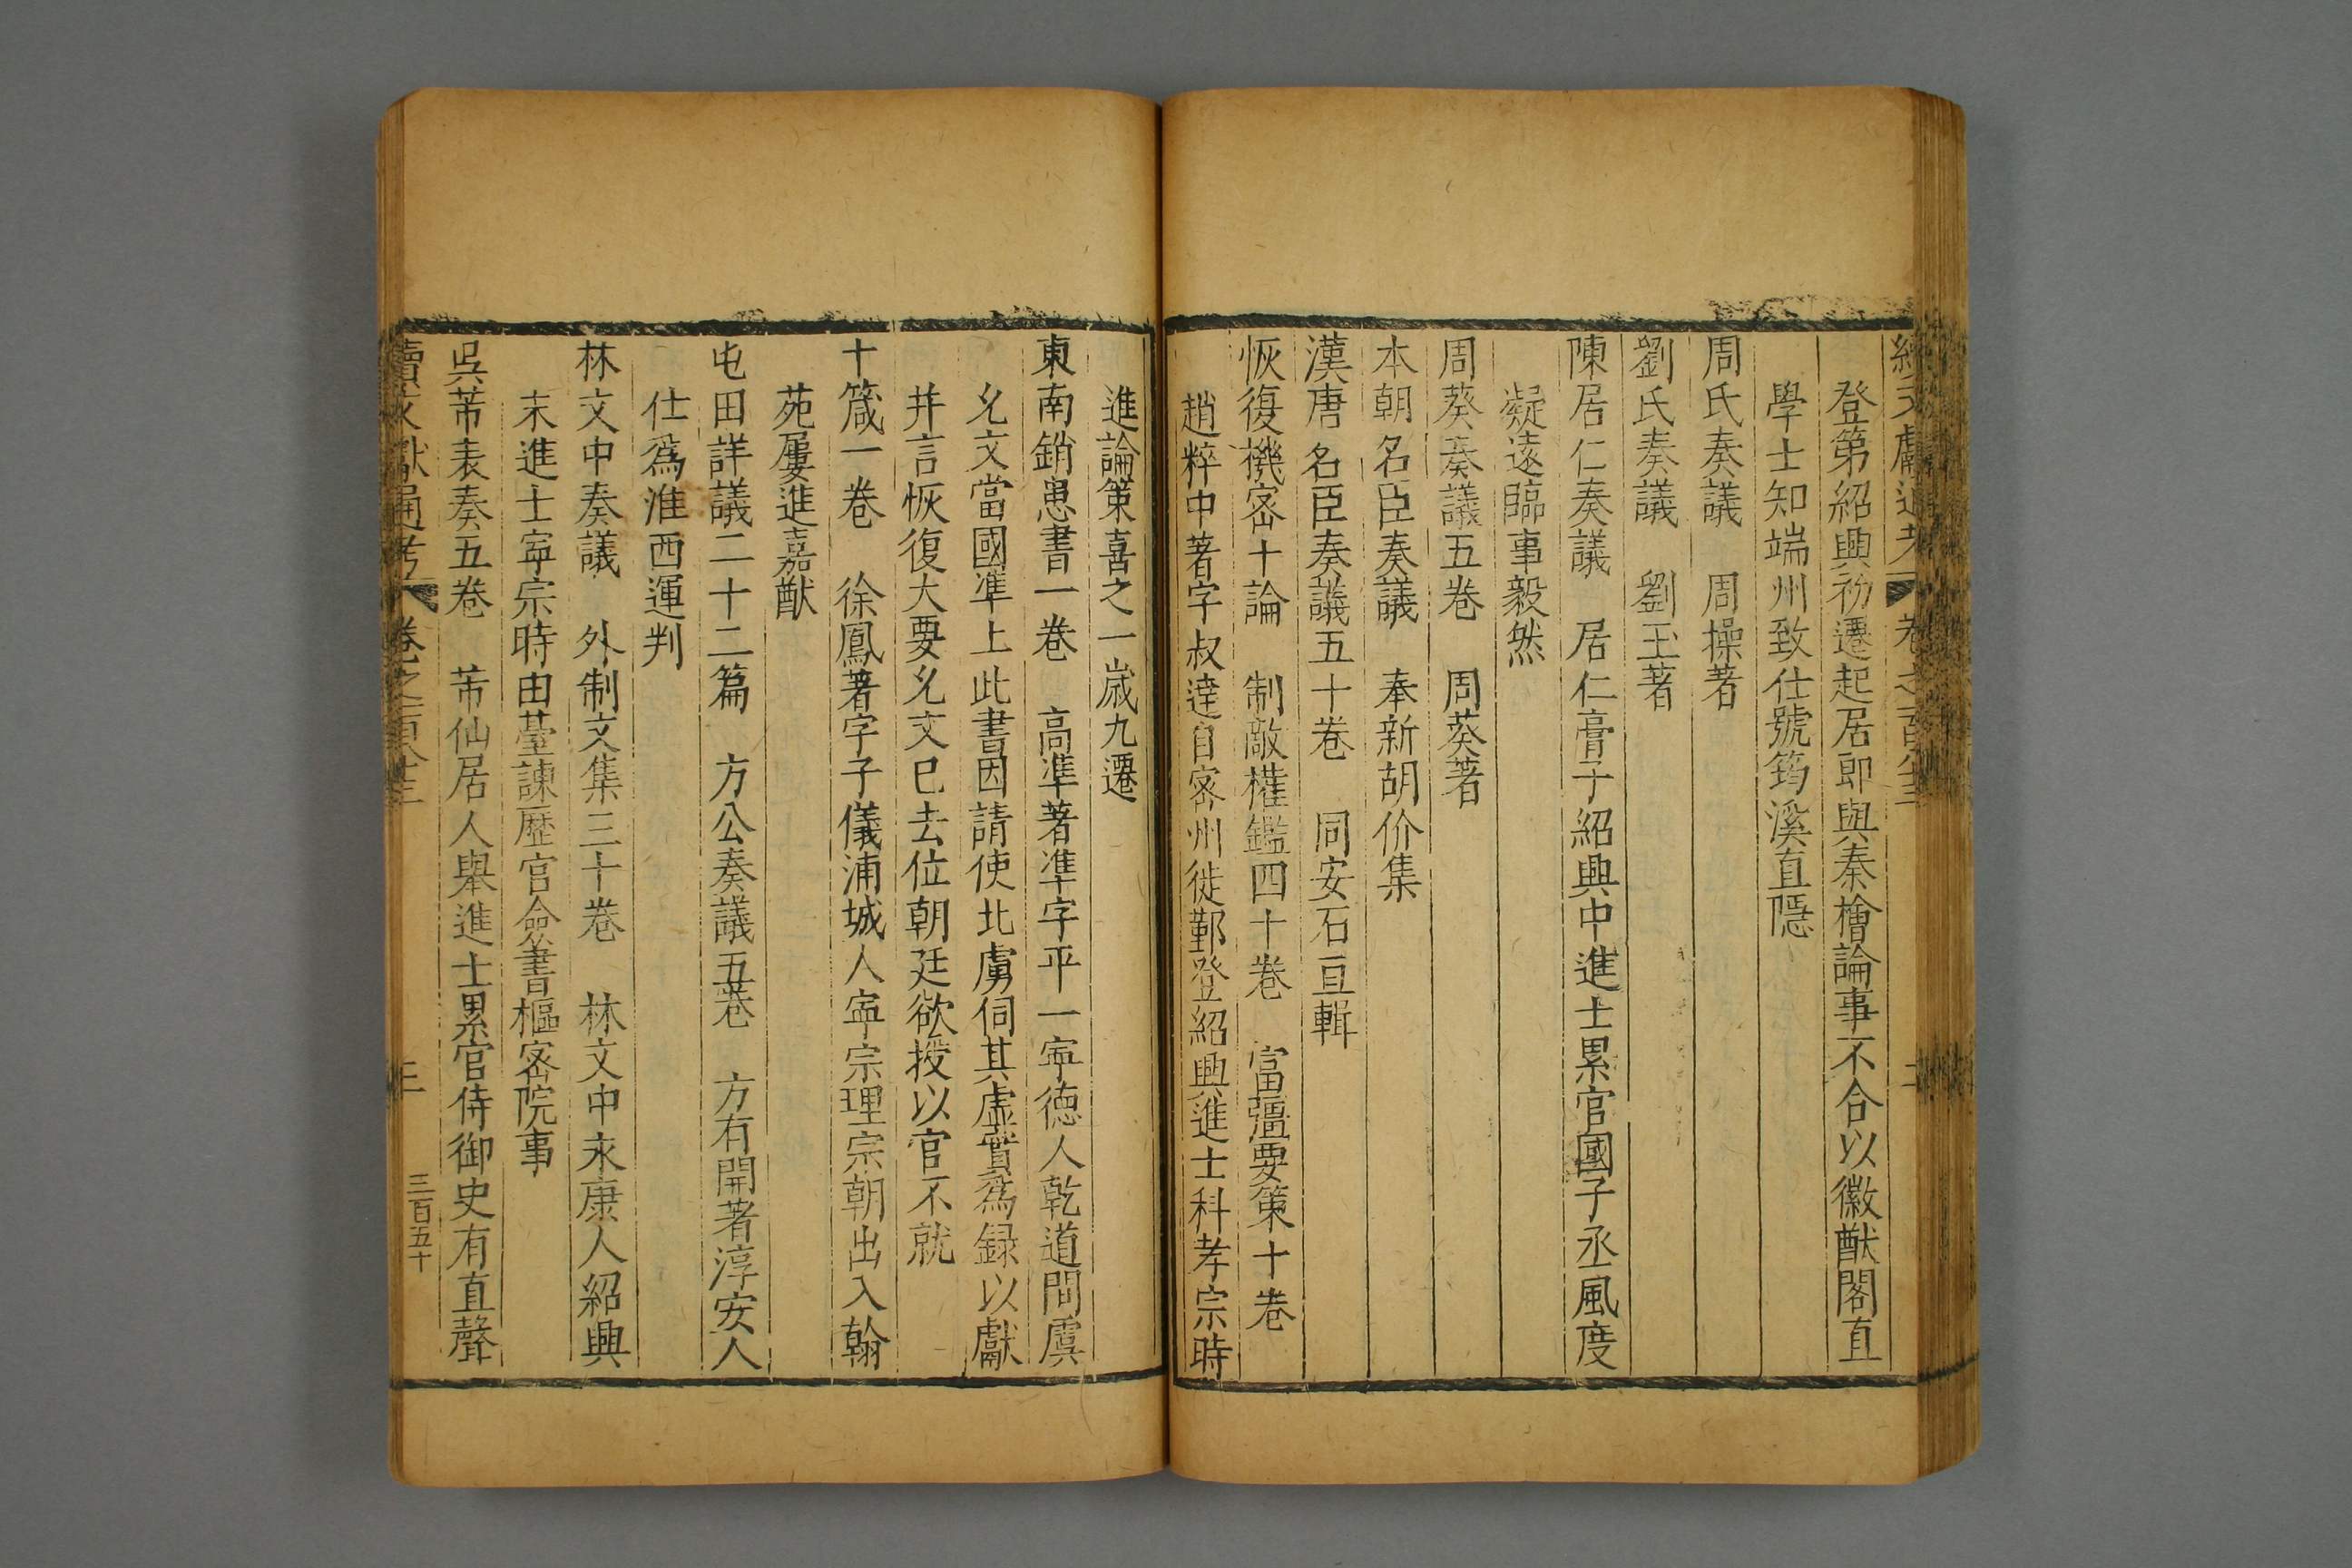 登第紹興初遷起居郎與秦檜論事不合以徽猷閣直
學士知端州致仕號筠溪直隱
周氏奏議　周操著
劉氏奏議　劉玨著
陳居仁奏議　居仁膏子紹興中進士累官國子丞風度
凝遠臨事毅然
周葵奏議五卷　周葵著
本朝名臣奏議　奉新胡价集
漢唐名臣奏議五十卷　同安石亘輯
恢復機密十論　制敵權鑑四十卷　富彊要策十卷
趙粹中著字叔達自密州徙鄞登紹興進士科孝宗時
進論策喜之一歲九遷
東南銷患書一卷　高準著準字平一寧德人乾道間虞
允文當國準上此書因請使北虜伺其虛實爲録以獻
并言恢復大要允文已去位朝廷欲授以官不就
十箴一卷　徐鳳著字子儀浦城人寧宗理宗朝出入翰
苑屢進嘉猷
屯田詳議二十二篇　方公奏議五卷　方有開著淳安人
仕爲淮西運判
林文中奏議　外制文集三十卷　林文中永康人紹興
末進士寧宗時由臺諫歷官僉書樞密院事
吳芾表奏五卷　芾仙居人舉進士累官侍御史有直聲
續文獻通考　卷之
三
三百五十